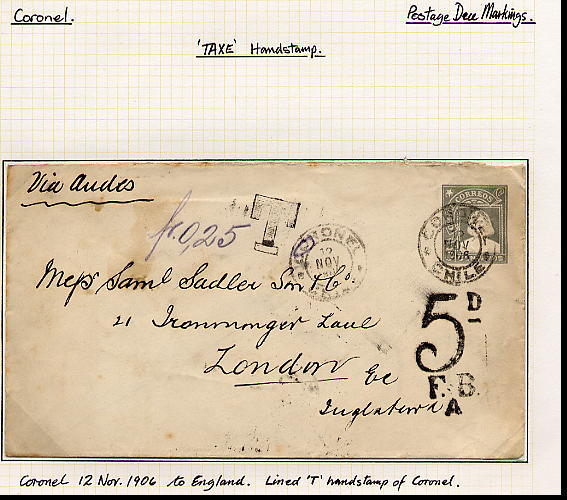 Coronel.
Postage Due Markings.
'TAXE' Handstamp.
Via Andes
fr.0,25
T
CORONEL
12
NOV
CORREOS
CORONEL
NOV
1906
CHILE
Messrs Saml Sadler Son & Co.
21 Ironmonger Lane
London
Ec
Inglaterra
5D
F.B.
A
Coronel 12 Nov. 1906 to England. Lined 'T' handstamp of Coronel.